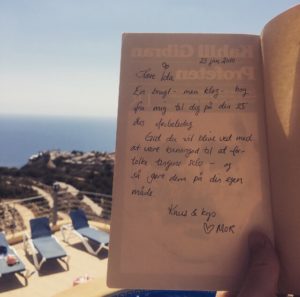 Kahlil Gibran
Profeten
23 jan 2010
Kære Ida
En brugt - men klog - bog
fra mig til dig på din 25
års fødselsdag.
Gid du vil blive ved med
at være nysgerrig til at for-
tolke tingene selv - og
så gøre dem på din egen
måde.
Knus & kys
♡ MOR